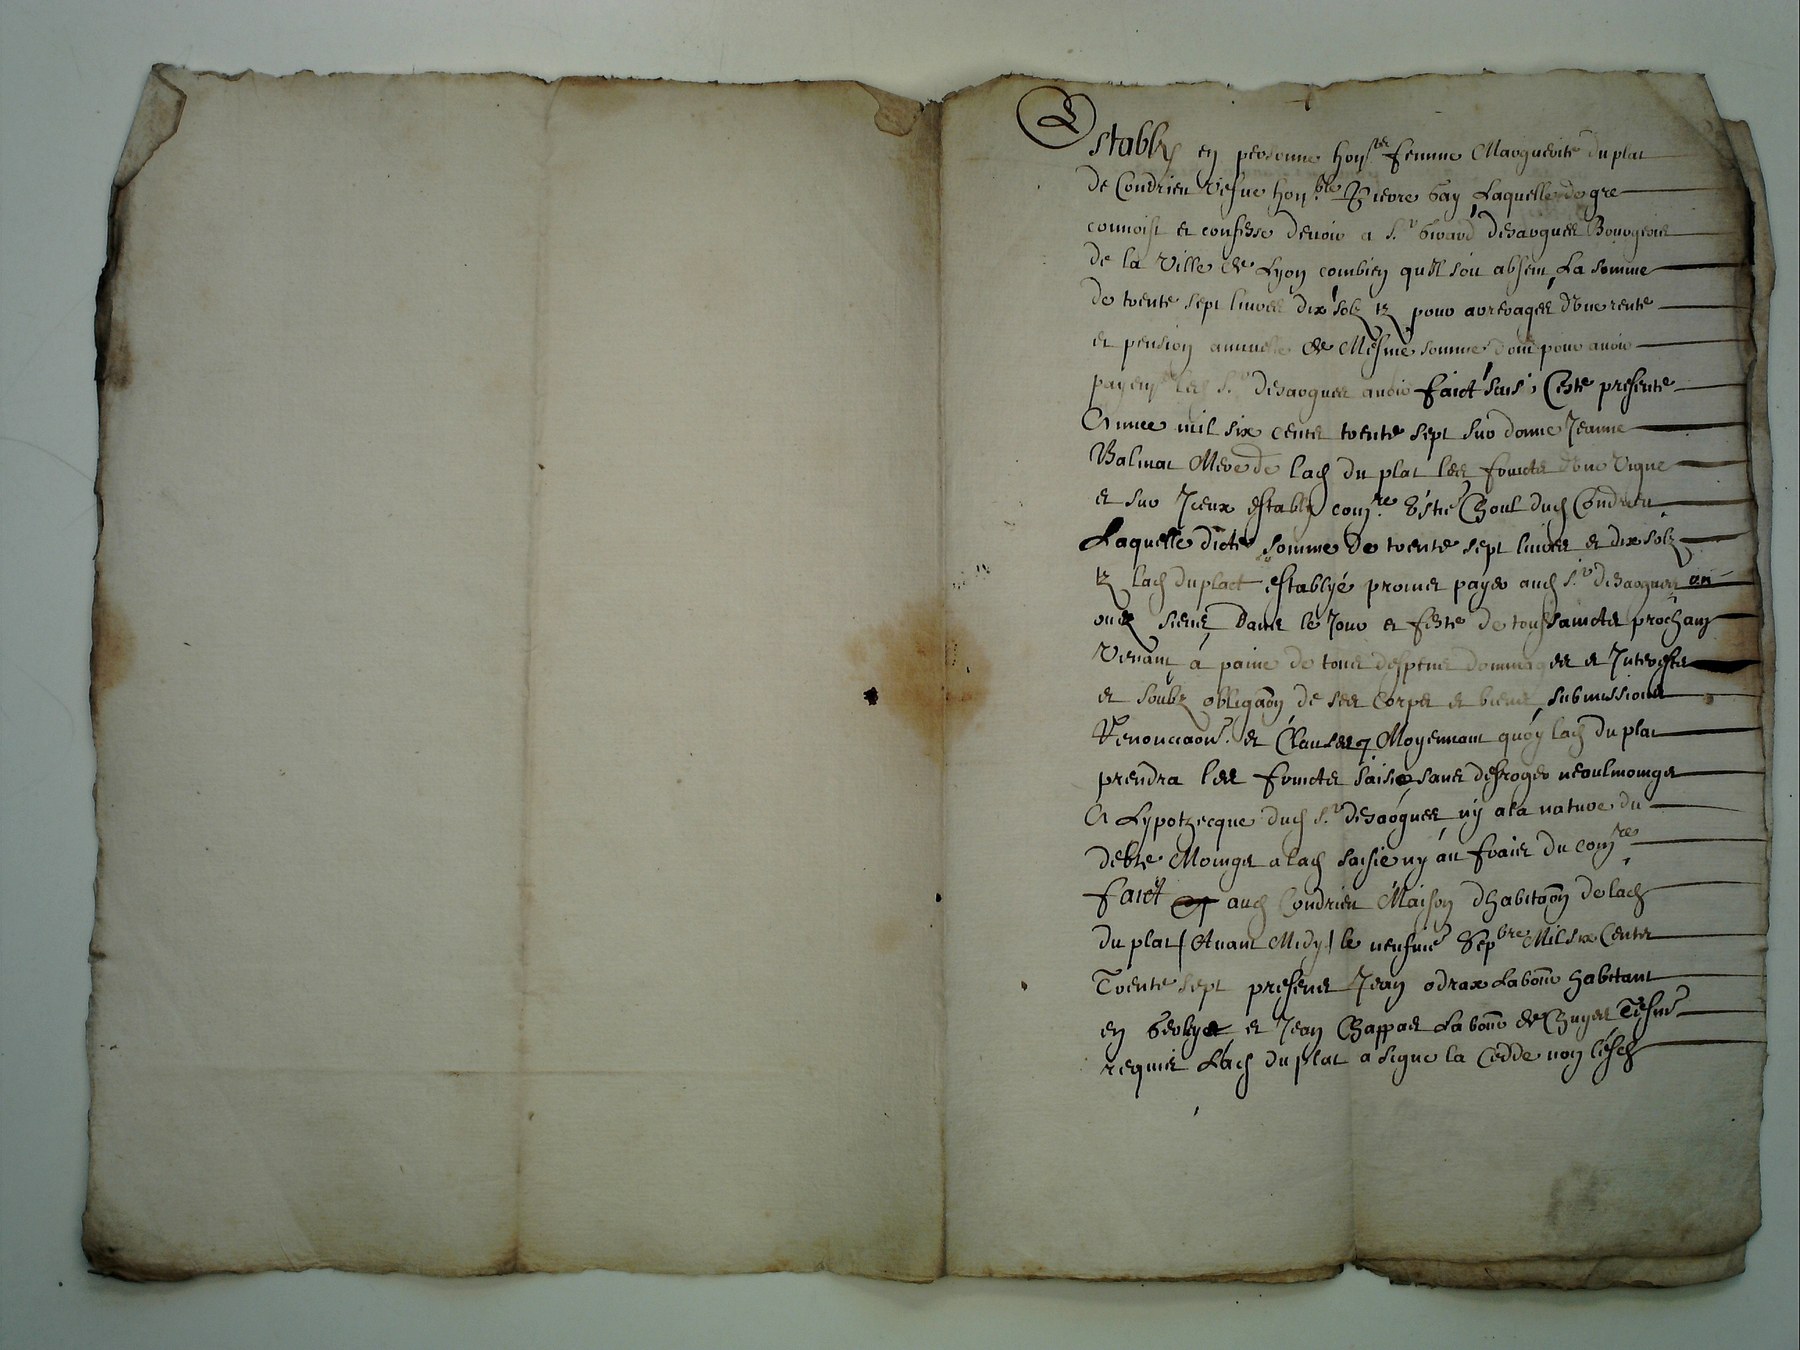 Establye en personne hon.ste femme Marguerite du plat
de Condrieu vefue hon.ble Pierre Gay Laquelle de gre
connoist et confesse devoir a S.r Girard desargues Bourgeois
de la Ville de Lyon combien quil soit absent La somme
de trente sept livres dix solz tz pour arrerages dune rente
et pension annuelle de Mesme somme dont pour avoir
payem.t led S.r desargues avoir faict saisir Ceste presente
Annee mil six cents trente sept sur donne Jeanne
Balmat Mere de lad du plat les fruicts dune Vigne
et sur Iceux estably com.re Choul dud Condrieu
Laquelle dicte somme de trente sept livres et dix solz
tz lad du plact establyé promet payer aud S.r desargues ou
aux siens Dans le Jour et feste de toussaincts prochain
Venant à paine de tous despens dommages et Interests
et soubz obligaõn de ses Corps et biens submissions
Renonciaons. et Clauses Moyennant quoy lad du plat
prendra les fruicts saisis sans desroger neaulmoings
A Lypothecque dud S.r desargues ny a la nature du
debte Moings a lad saisie ny au frais du com.re
faict aud Condrieu Maison dhabitaõn de lad
du plat Avant Midy le neufme Sep.bre Mil six Cents
Trente sept presents Jean odrax Labour habitant
en et Jean Chappas Labour de Chuyes Tesm
requis Lad du plat a signe la Cedde non lesd